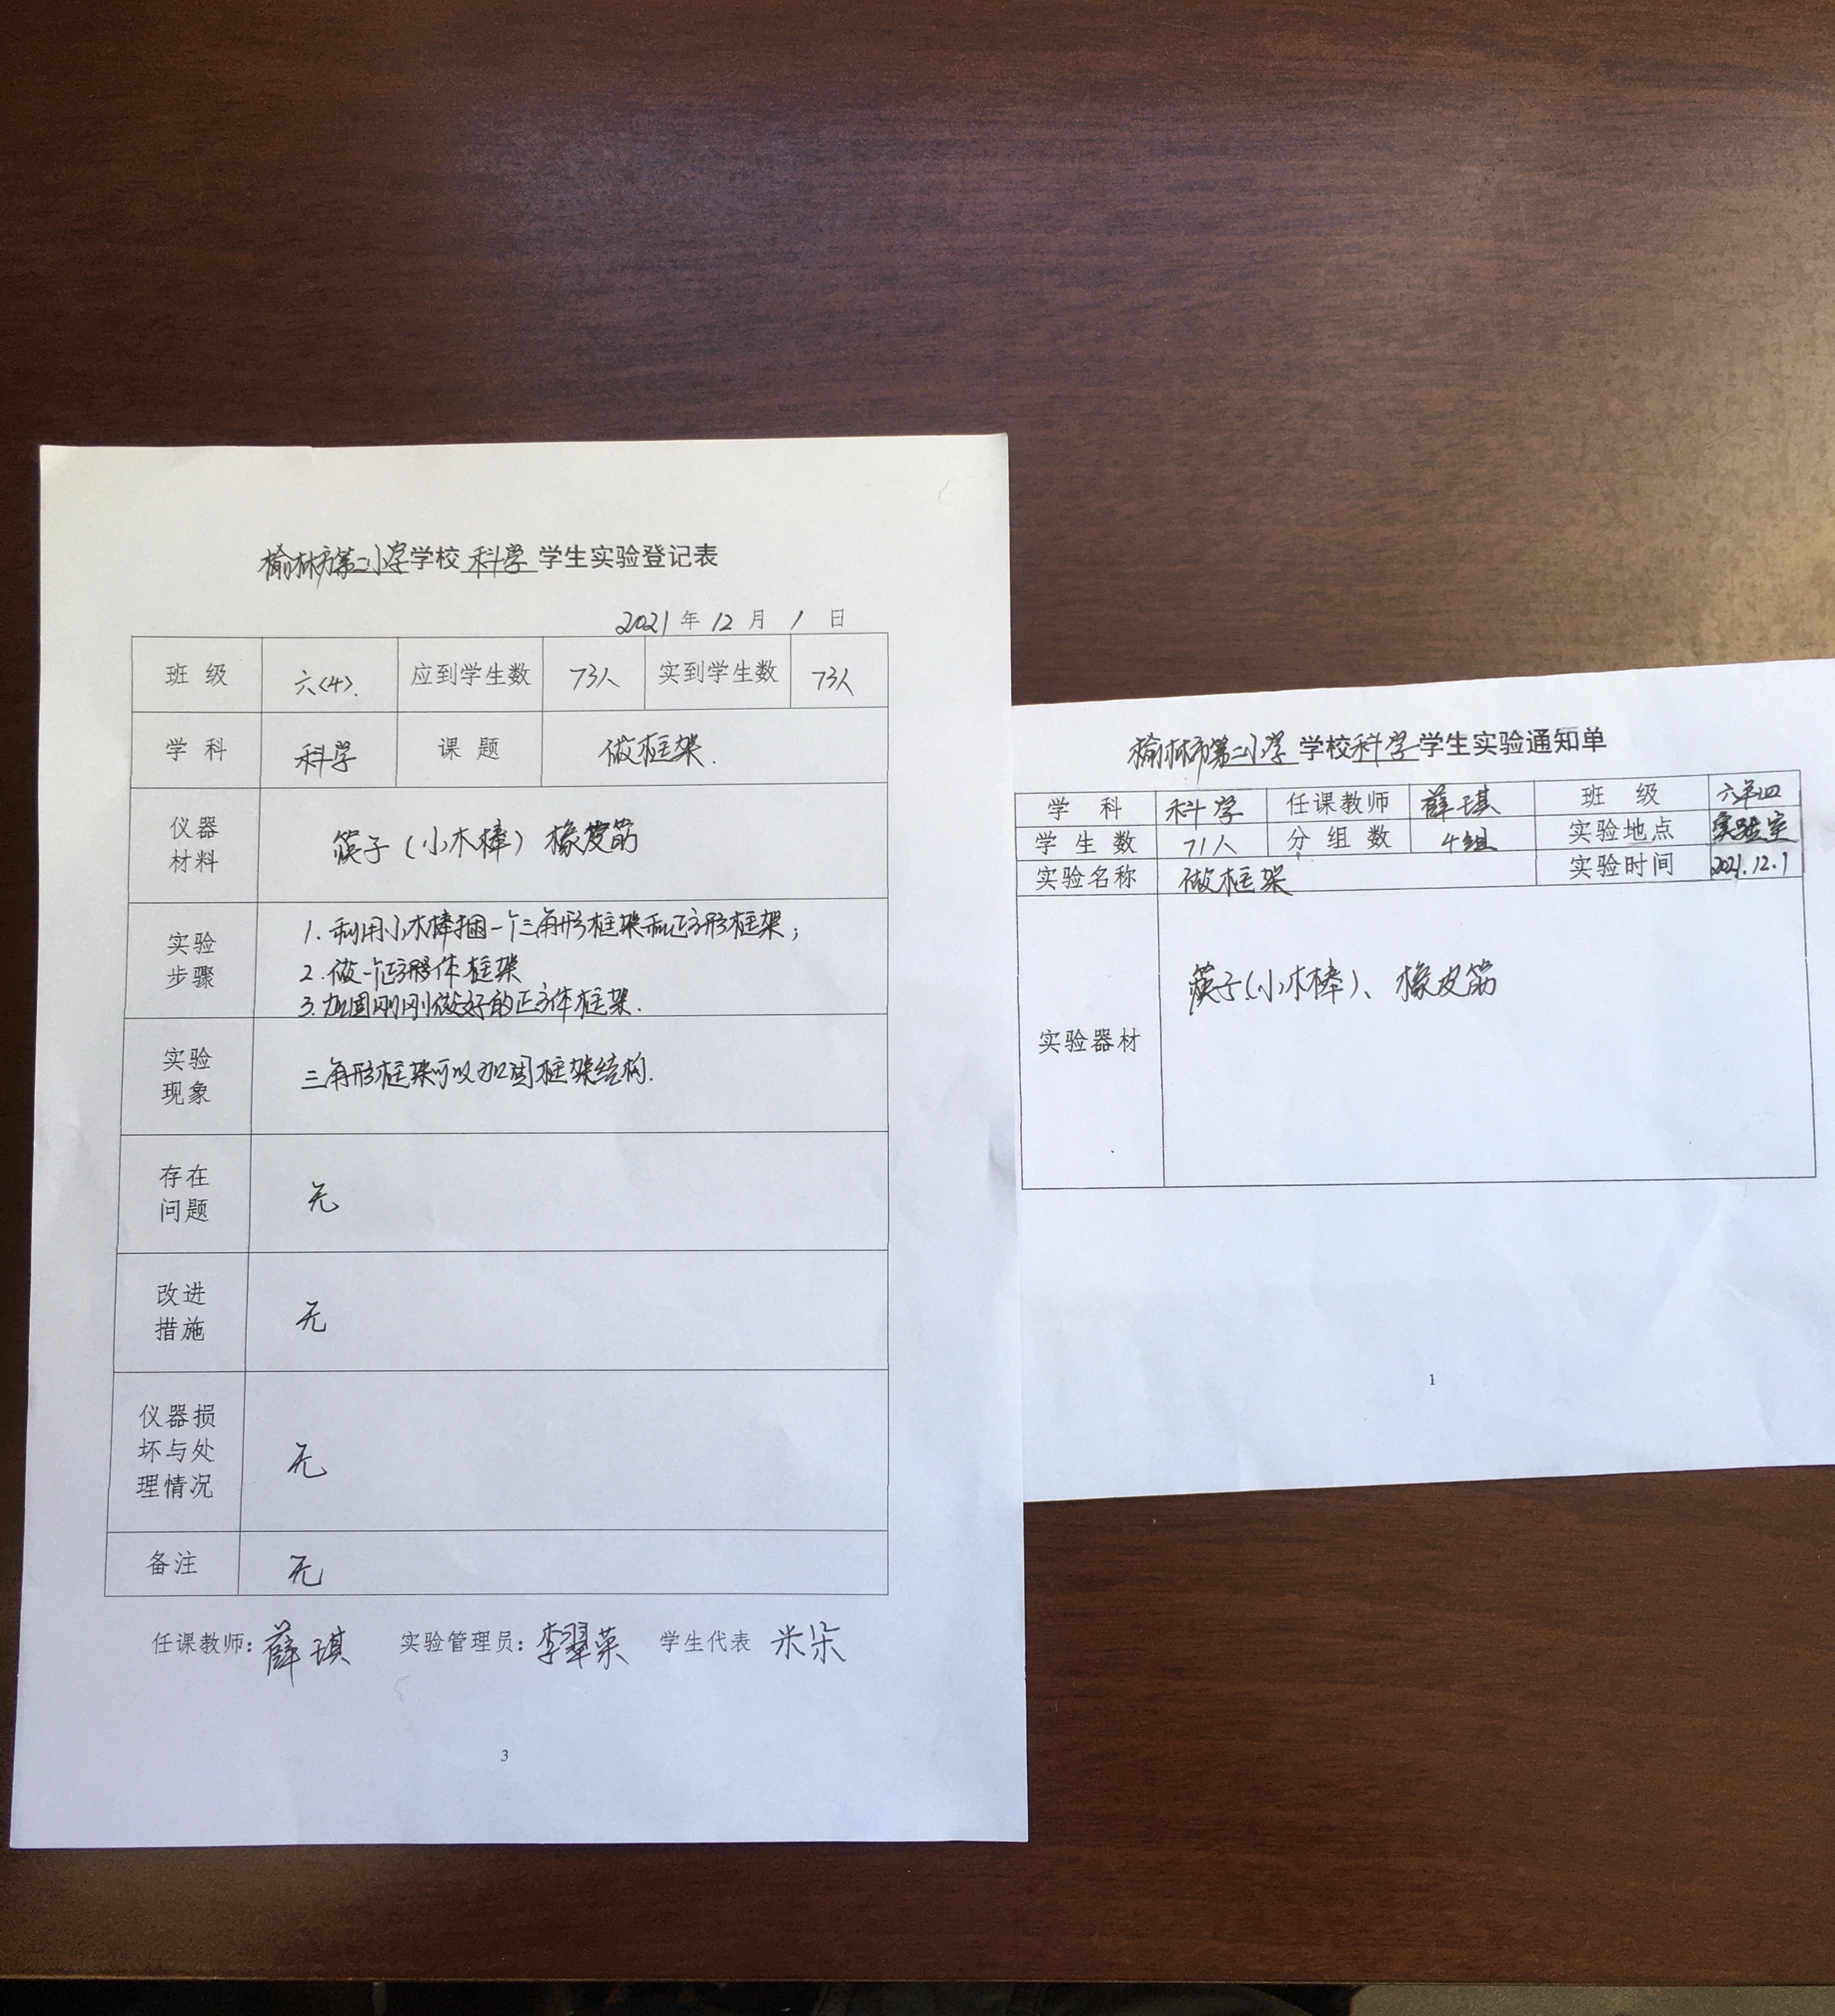 榆林市第二小学学校 科学 学生实验登记表
2021 年 12 月 1 日
班 级 六(4). 应到学生数 73人 实到学生数 73人
学 科 科学 课 题 做框架.
仪器
材料
筷子(小木棒) 橡皮筋
实验
步骤
1.利用小木棒捆一个三角形框架和正方形框架;
2.做一个正方形体框架
3.加固刚刚做好的正方体框架.
实验
现象
三角形框架可以加固框架结构.
存在
问题
无
改进
措施
无
仪器损
坏与处
理情况
无
备注 无
任课教师:薛琪 实验管理员:李翠荣 学生代表 米朵
3
榆林市第二小学 学校科学学生实验通知单
学 科 科学 任课教师 薛琪 班 级 六年四
学 生 数 71人 分 组 数 4组 实验地点 实验室
实验名称 做框架 实验时间 2021.12.1
实验器材
筷子(小木棒)、橡皮筋
1